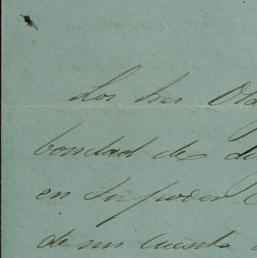 Los Sres
bondad de
en su poder
de mi cuenta